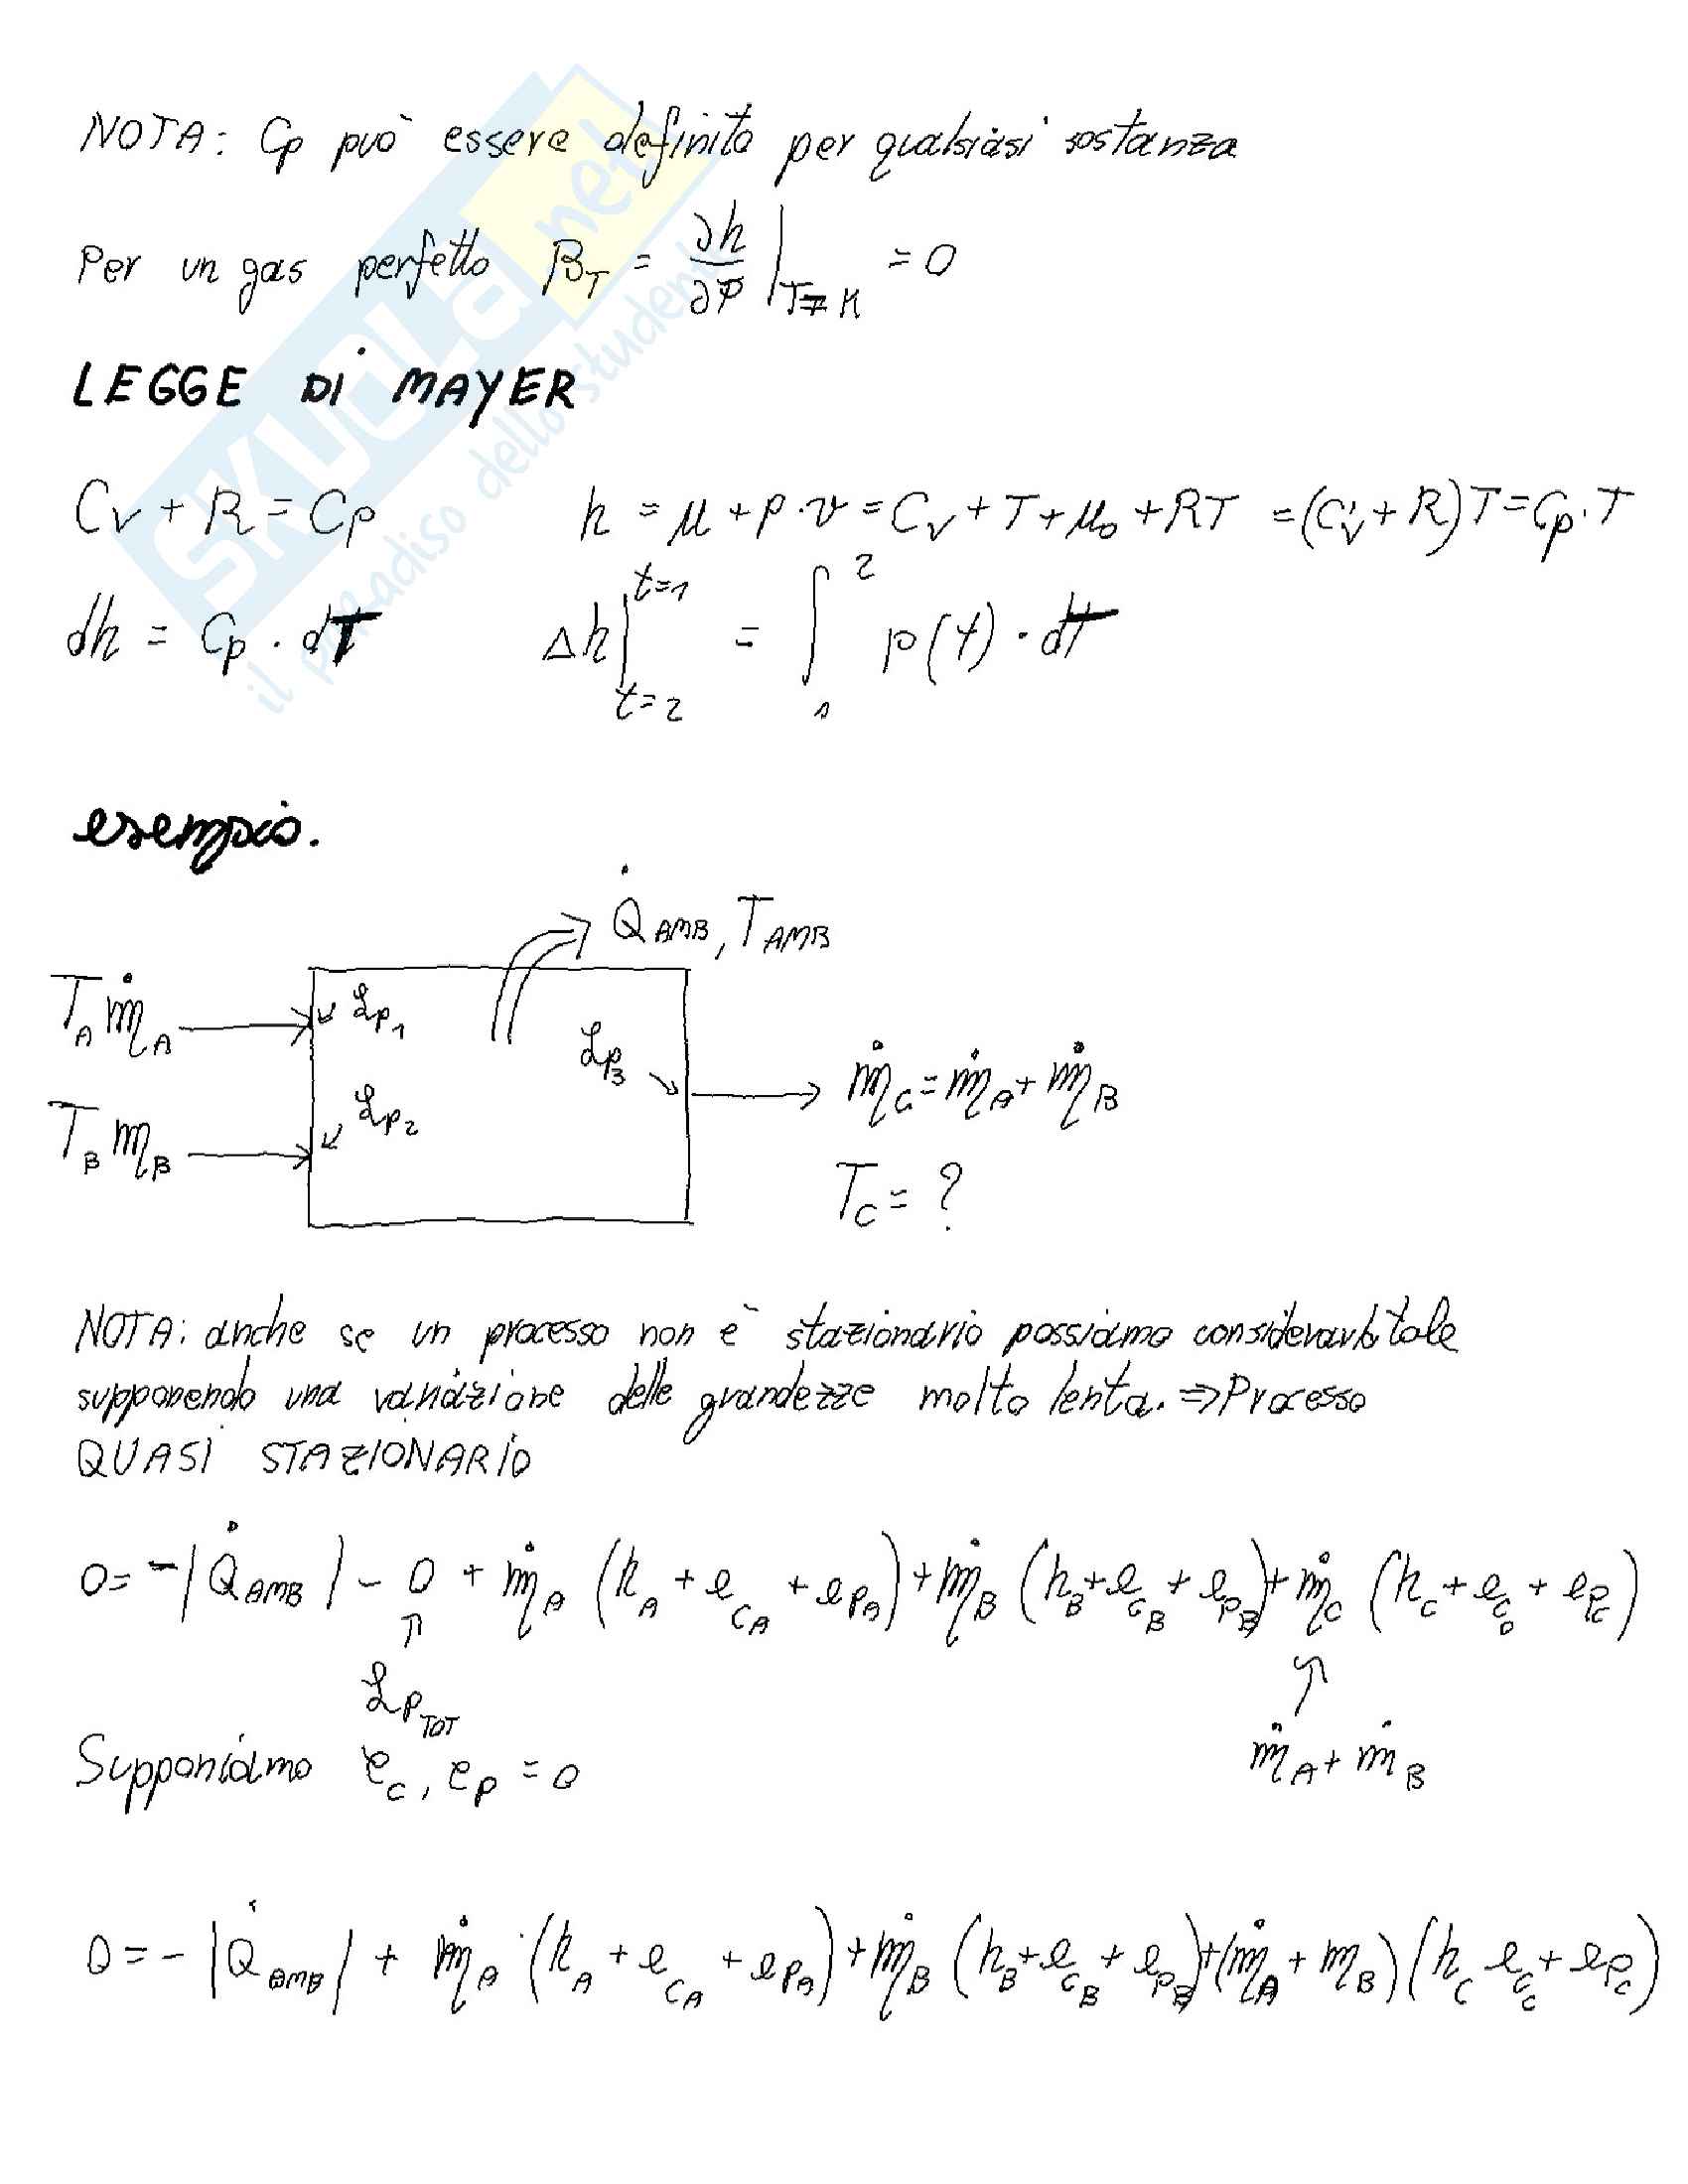 NOTA: Cp può essere definito per qualsiasi sostanza
Per un gas perfetto β_T = ∂h/∂P |_{T=K} = 0
LEGGE DI MAYER
C_V + R = C_P h = μ + p·v = C_V + T + μ_0 + RT = (C_V + R)T = C_P·T
dh = C_P · dT Δh |_{t=2}^{t=1} = ∫_1^2 p(t) · dT
esempio.
Q̇_AMB, T_AMB
T_A ṁ_A
ℒ_P1
ℒ_P3
ṁ_C = ṁ_A + ṁ_B
T_B m_B
ℒ_P2
T_C = ?
NOTA: anche se un processo non è stazionario possiamo considerarlo tale
supponendo una variazione delle grandezze molto lenta. ⇒ Processo
QUASI STAZIONARIO
0 = -|Q̇_AMB| - 0 + ṁ_A (h_A + e_{C_A} + e_{P_A}) + ṁ_B (h_B + e_{C_B} + e_{P_B}) + ṁ_C (h_C + e_{C_C} + e_{P_C})
ℒ_{P_TOT}
ṁ_A + ṁ_B
Supponiamo e_C, e_P = 0
0 = -|Q̇_AMB| + ṁ_A · (h_A + e_{C_A} + e_{P_A}) + ṁ_B (h_B + e_{C_B} + e_{P_B}) + (ṁ_A + m_B) (h_C e_{C_C} + e_{P_C})
SKUOLA.net
il paradiso dello studente